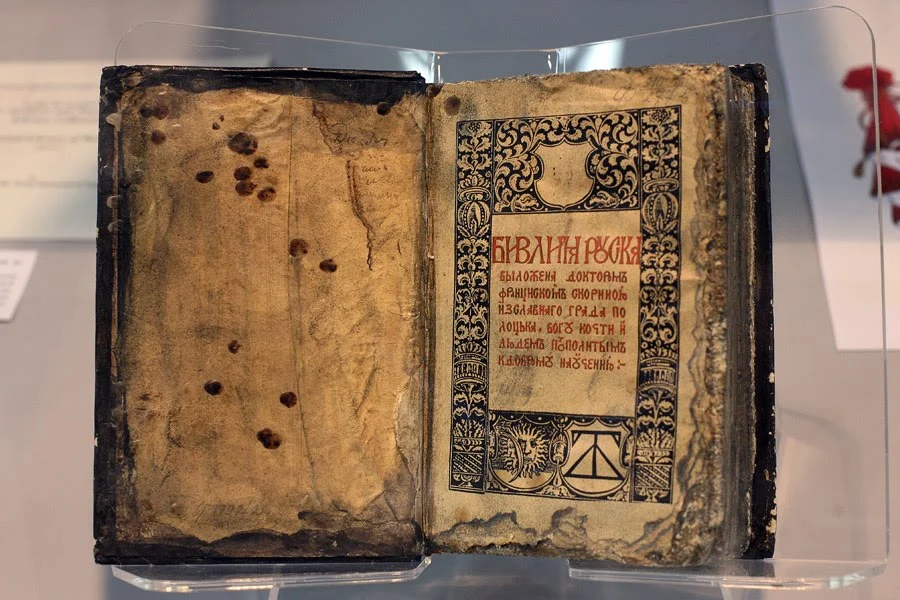 БИВЛИꙖ РꙋСКА
ВЫЛОЖЕНА ДОКТОРОМЪ
ФРАНЦИСКОМЪ СКОРИНОЮ
ИЗСЛАВНАГО ГРАДА ПО
ЛОЦЬКА, БОГꙋ КОЧТИ И
ЛЮДЕМЪ ПОСПОЛИТЫМЪ
КДОБРОМꙋ НАꙋЧЕНИЮ :~